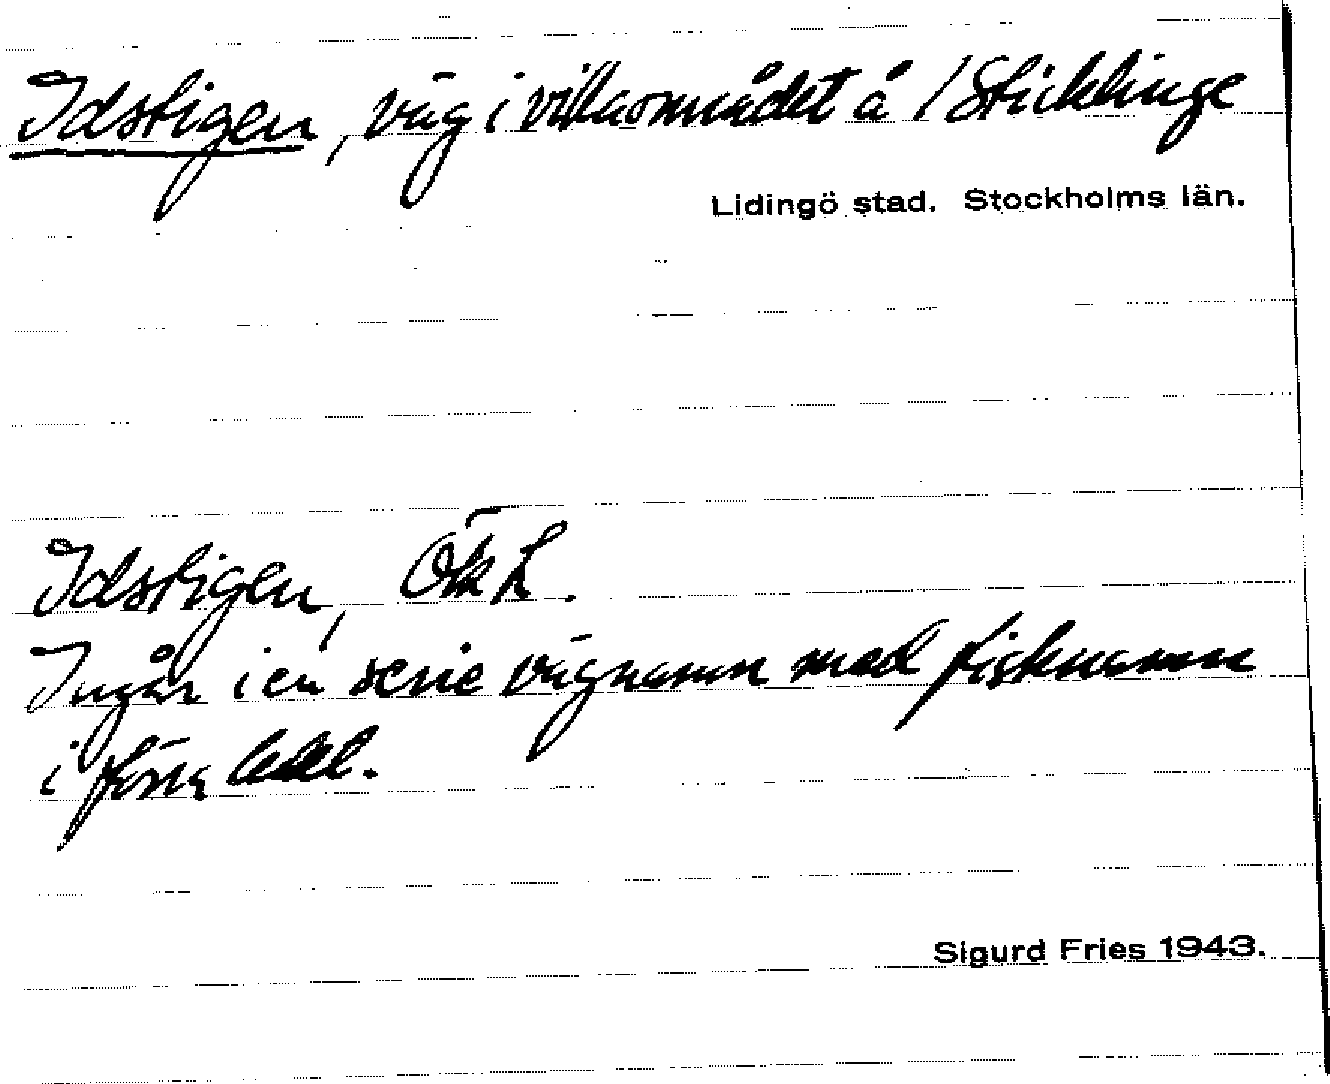 Idstigen, väg i villaområdet å / Sticklinge
Lidingö stad. Stockholms län.
Idstigen, Ök L.
Ingår i en serie vägnamn med fisknamn
i förra ledet.
Sigurd Fries 1943.